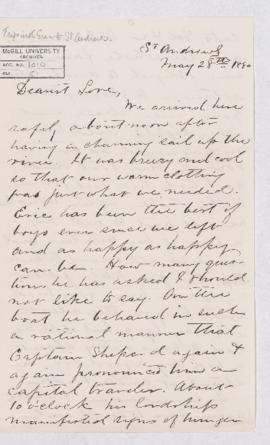 Trip with Eric to St Andrews.
McGILL UNIVERSITY
ARCHIVES
ACC. NO. 1010
REF.
St Andrews
May 28th 1880
Dearest Love,
We arrived here
safely about noon after
having a charming sail up the
river. It was breezy and cool
so that our warm clothing
was just what we needed.
Eric has been the best of
boys ever since we left
and as happy as happy
can be. How many ques-
tions he has asked I should
not like to say. On the
boat he behaved in such
a rational manner that
Captain Shepherd again &
again pronounced him a
capital traveler. About
10 o'clock his Lordship
manifested signs of hunger